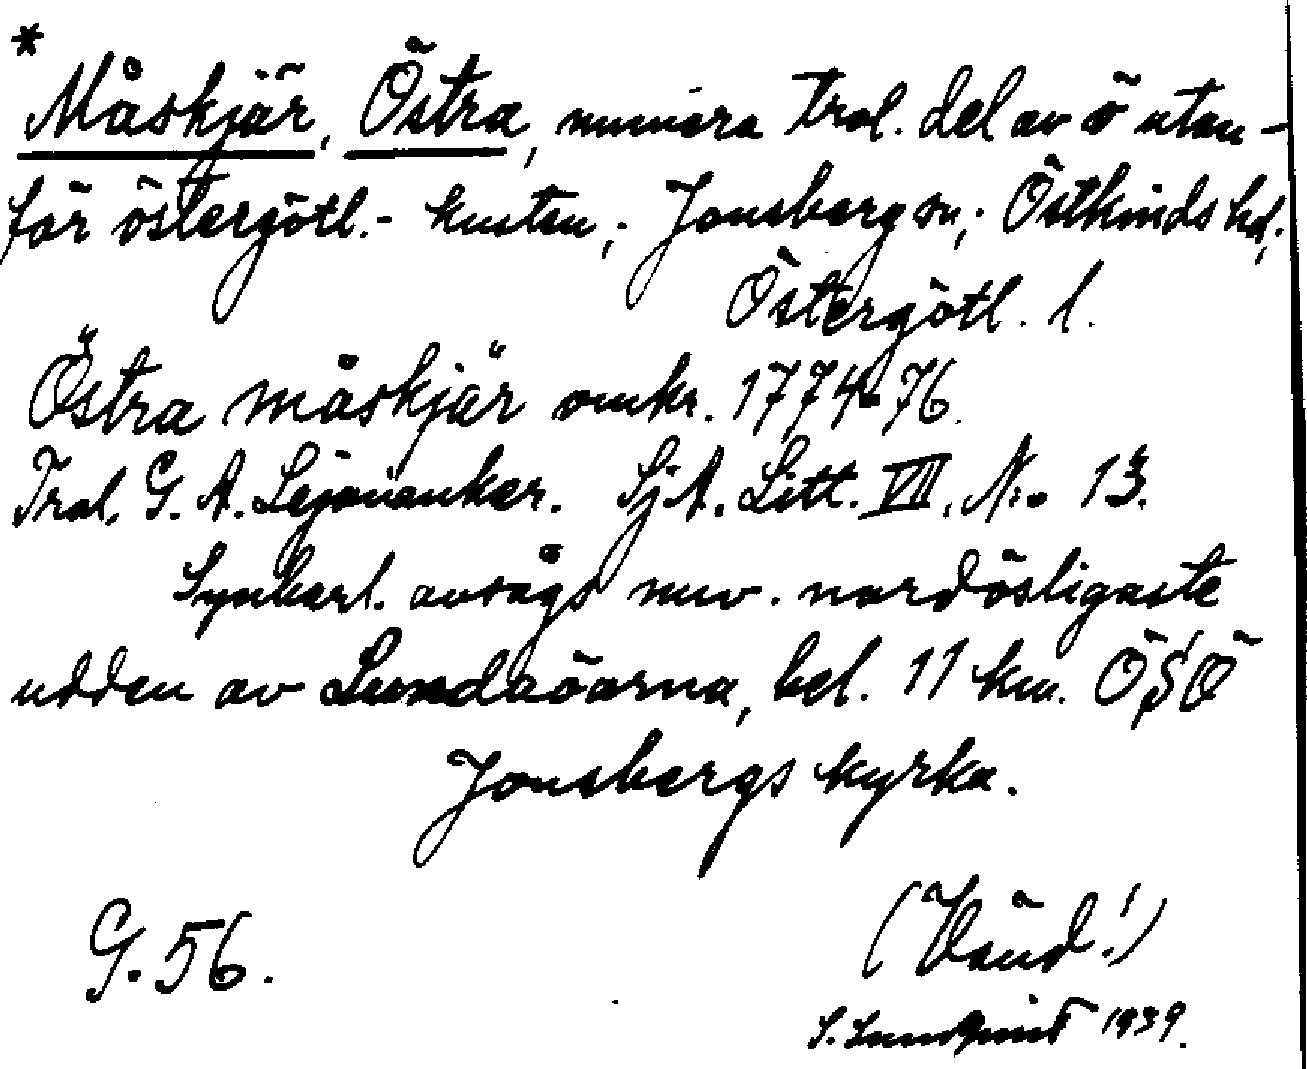 *
Måskjär, Östra, numera trol. del av ö utan-
för östergötl.- kusten,; Jonsberg sn,; Östkinds hd,;
Östergötl. l.
Östra måskjär omkr. 1774-76.
Trol. G. A. Lejonanker. SjA. Litt. VIII. No 13.
Synbarl. avsågs nuv. nordösligaste
udden av Lundaöarna, bel. 11 km. ÖSÖ
Jonsbergs kyrka.
G. 56.
(Vänd!)
S. Lundqvist 1939.